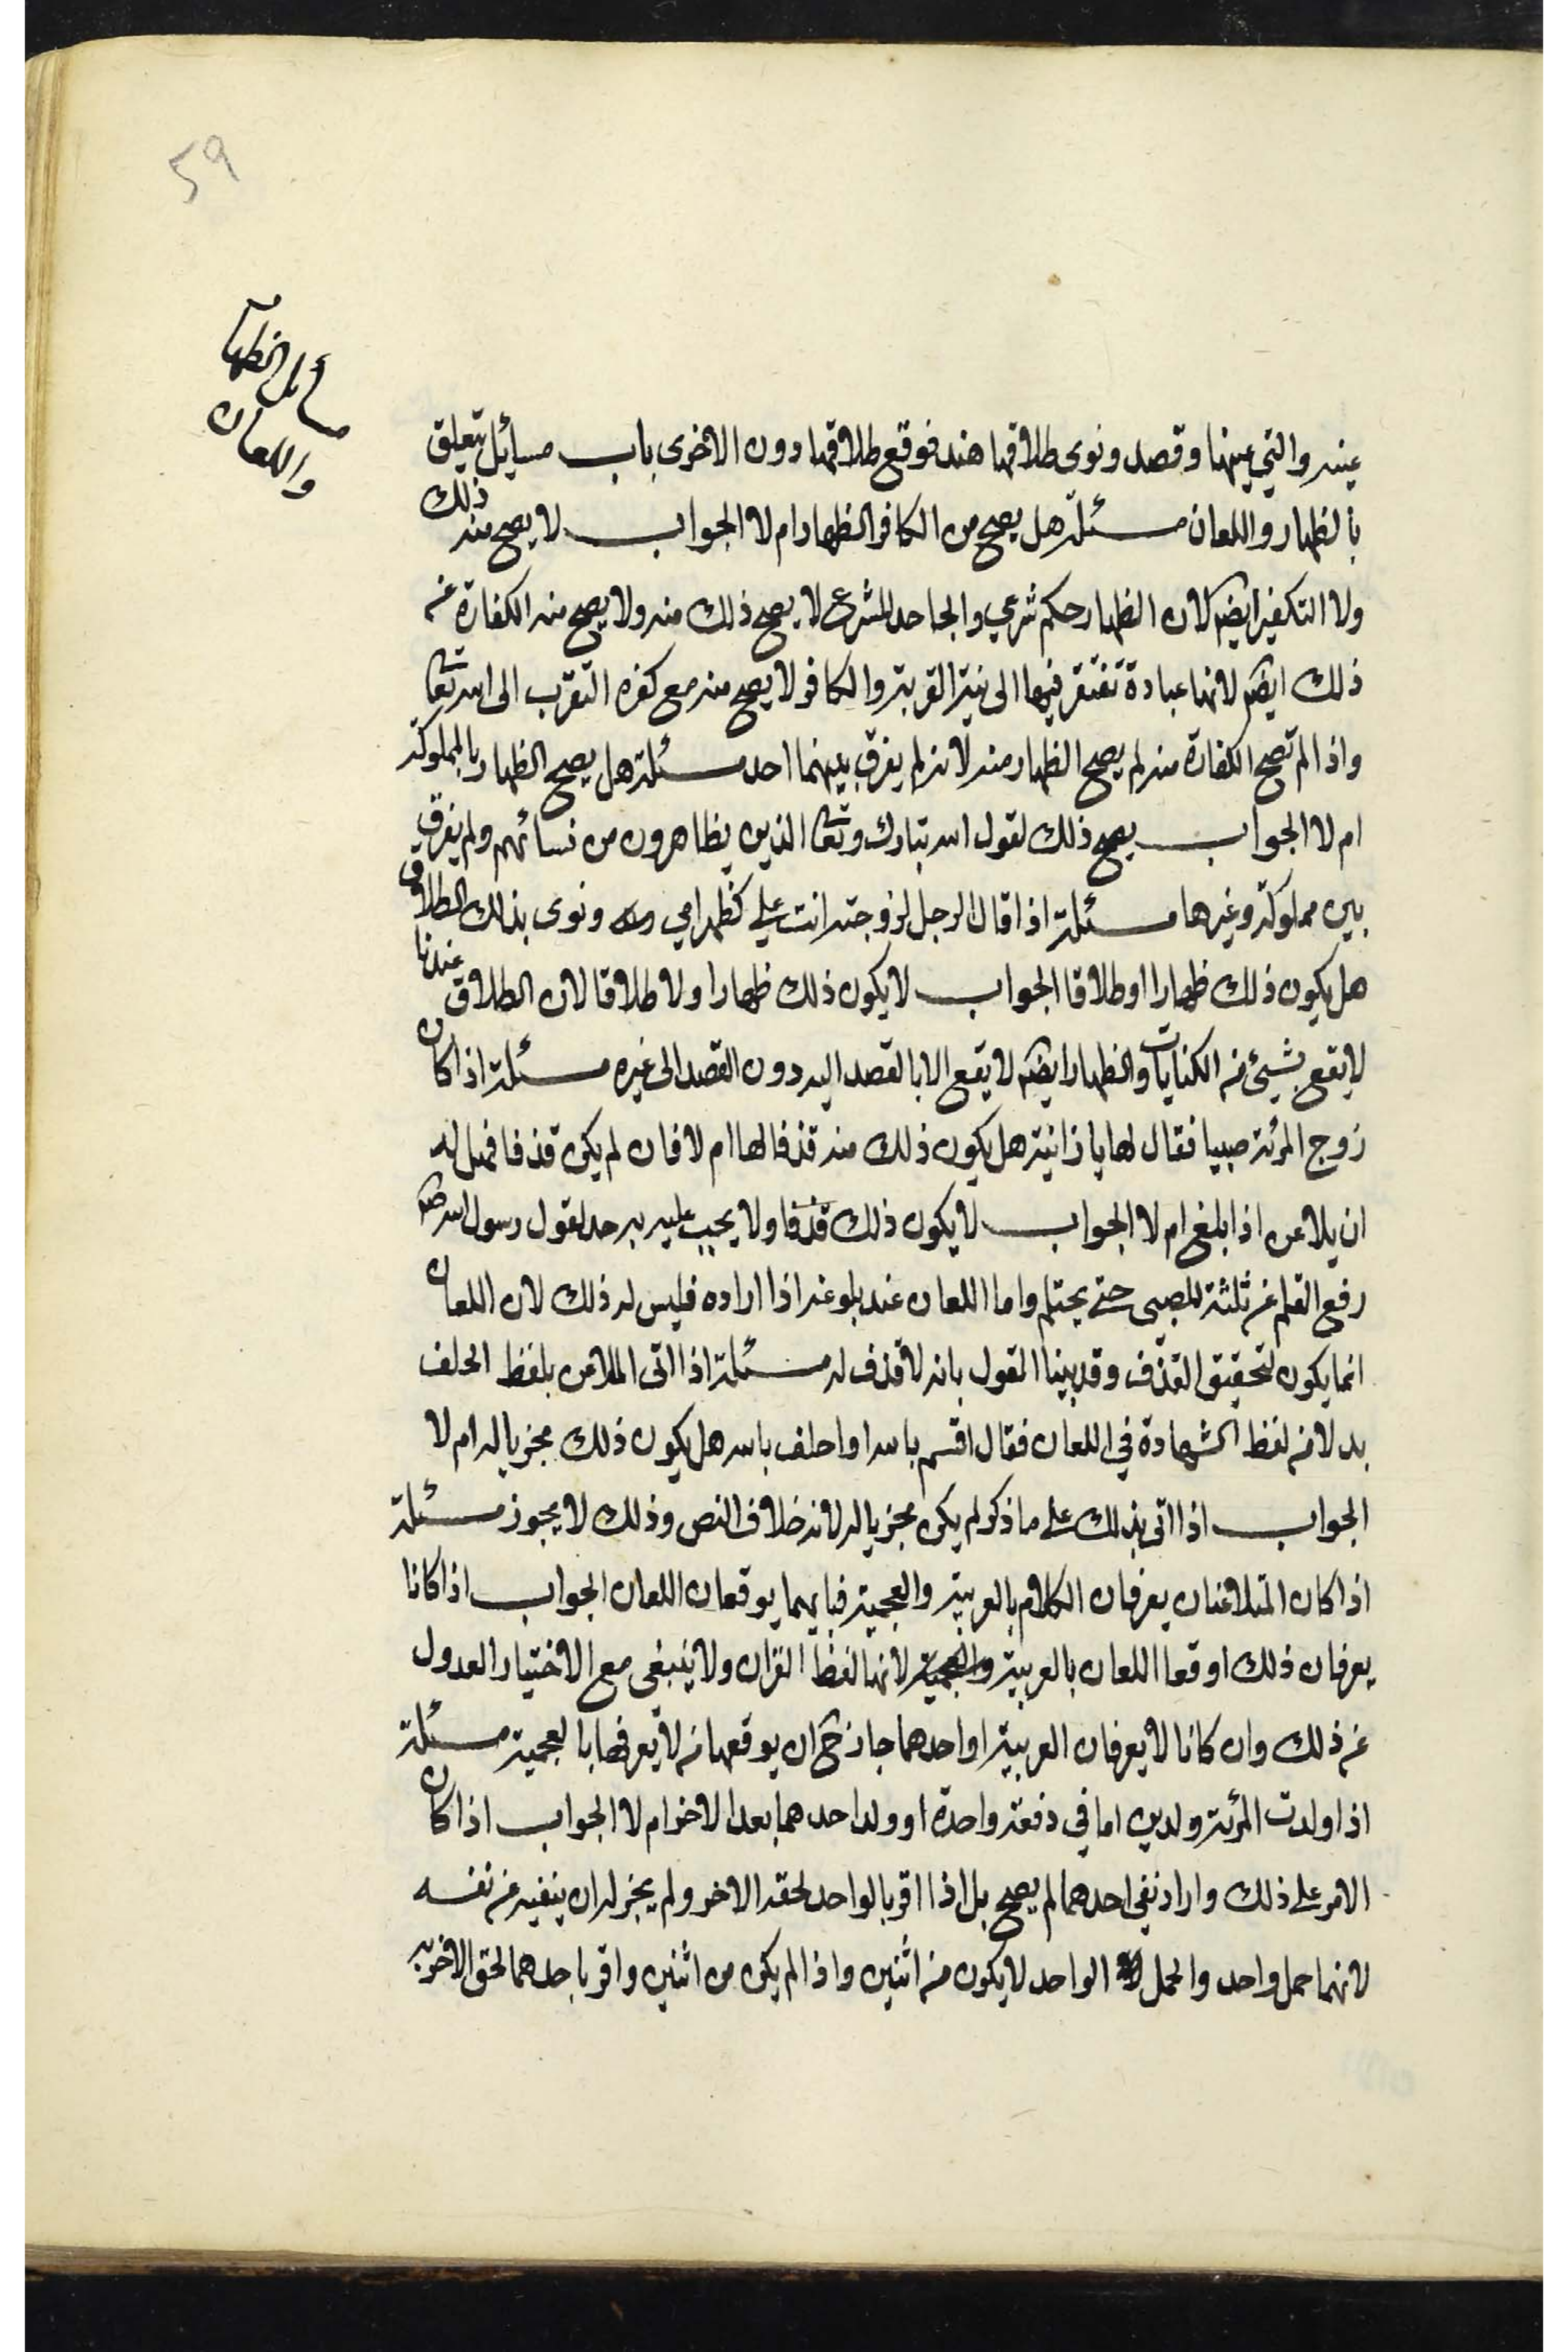 59
مسائل الظهار
واللعان
عينه والتي عينها وقصد ونوى طلاقها هند فوقع طلاقها دون الاخرى باب مسايل تتعلق
بالظهار واللعان مسئلة هل يصح من الكافر الظهار ام لا الجواب لا يصح منه ذلك
ولا التكفير ايضا لان الظهار حكم شرعي والجاحد للشرع لا يصح ذلك منه ولا يصح منه الكفارة عن
ذلك ايضا لانها عبادة تفتقر فيها الى نية القربة والكافر لا يصح منه مع كفره التقرب الى الله تعا
واذا لم تصح الكفارة منه لم يصح الظهار منه لانه لم يفرق بينهما احد مسئلة هل يصح الظهار بالمملوكة
ام لا الجواب يصح ذلك لقول الله تبارك وتعا الذين يظاهرون من نسائهم ولم يفرق
بين مملوكة وغيرها مسئلة اذا قال الرجل لزوجته انت علي كظهر امي ونوى بذلك الطلاق
هل يكون ذلك ظهارا او طلاقا الجواب لا يكون ذلك ظهارا ولا طلاقا لان الطلاق عندنا
لا يقع بشيئ من الكنايات والظهار ايضا لا يقع الا بالقصد اليه دون القصد الى غيره مسئلة اذا كان
زوج المرئة صبيا فقال لها يا زانية هل يكون ذلك منه قذفا لها ام لا فان لم يكن قذفا فهل له
ان يلاعن اذا بلغ ام لا الجواب لا يكون ذلك قذفا ولا يجب عليه به حد لقول رسول الله ص
رفع القلم عن ثلثة للصبي حتى يحتلم واما اللعان عند بلوغه اذا اراده فليس له ذلك لان اللعان
انما يكون لتحقيق القذف وقد بينا القول بانه لا قذف له مسئلة اذا اتى الملاعن بلفظ الحلف
بدلا من لفظ الشهادة في اللعان فقال اقسم بالله او احلف بالله هل يكون ذلك مجزيا له ام لا
الجواب اذا اتى بذلك على ما ذكر لم يكن مجزيا له لانه خلاف النص وذلك لا يجوز مسئلة
اذا كان المتلاعنان يعرفان الكلام بالعربية والعجمية فبايهما يوقعان اللعان الجواب اذا كانا
يعرفان ذلك اوقعا اللعان بالعربية والعجمية لانها لفظ القران ولا ينبغى مع الاختيار العدول
عن ذلك وان كانا لا يعرفان العربية او احدهما جاز ح ان يوقعها من لا يعرفها بالعجمية مسئلة
اذا ولدت المرئة ولدين اما في دفعة واحدة او ولد احدهما بعد الاخر ام لا الجواب اذا كان
الامر على ذلك واراد نفي احدهما لم يصح بل اذا اقر بالواحد لحقه الاخر ولم يجز له ان ينفيه عن نفسه
لانهما حمل واحد والحمل الواحد لا يكون من اثنين واذا لم يكن من اثنين واقر باحدهما لحق الاخر به